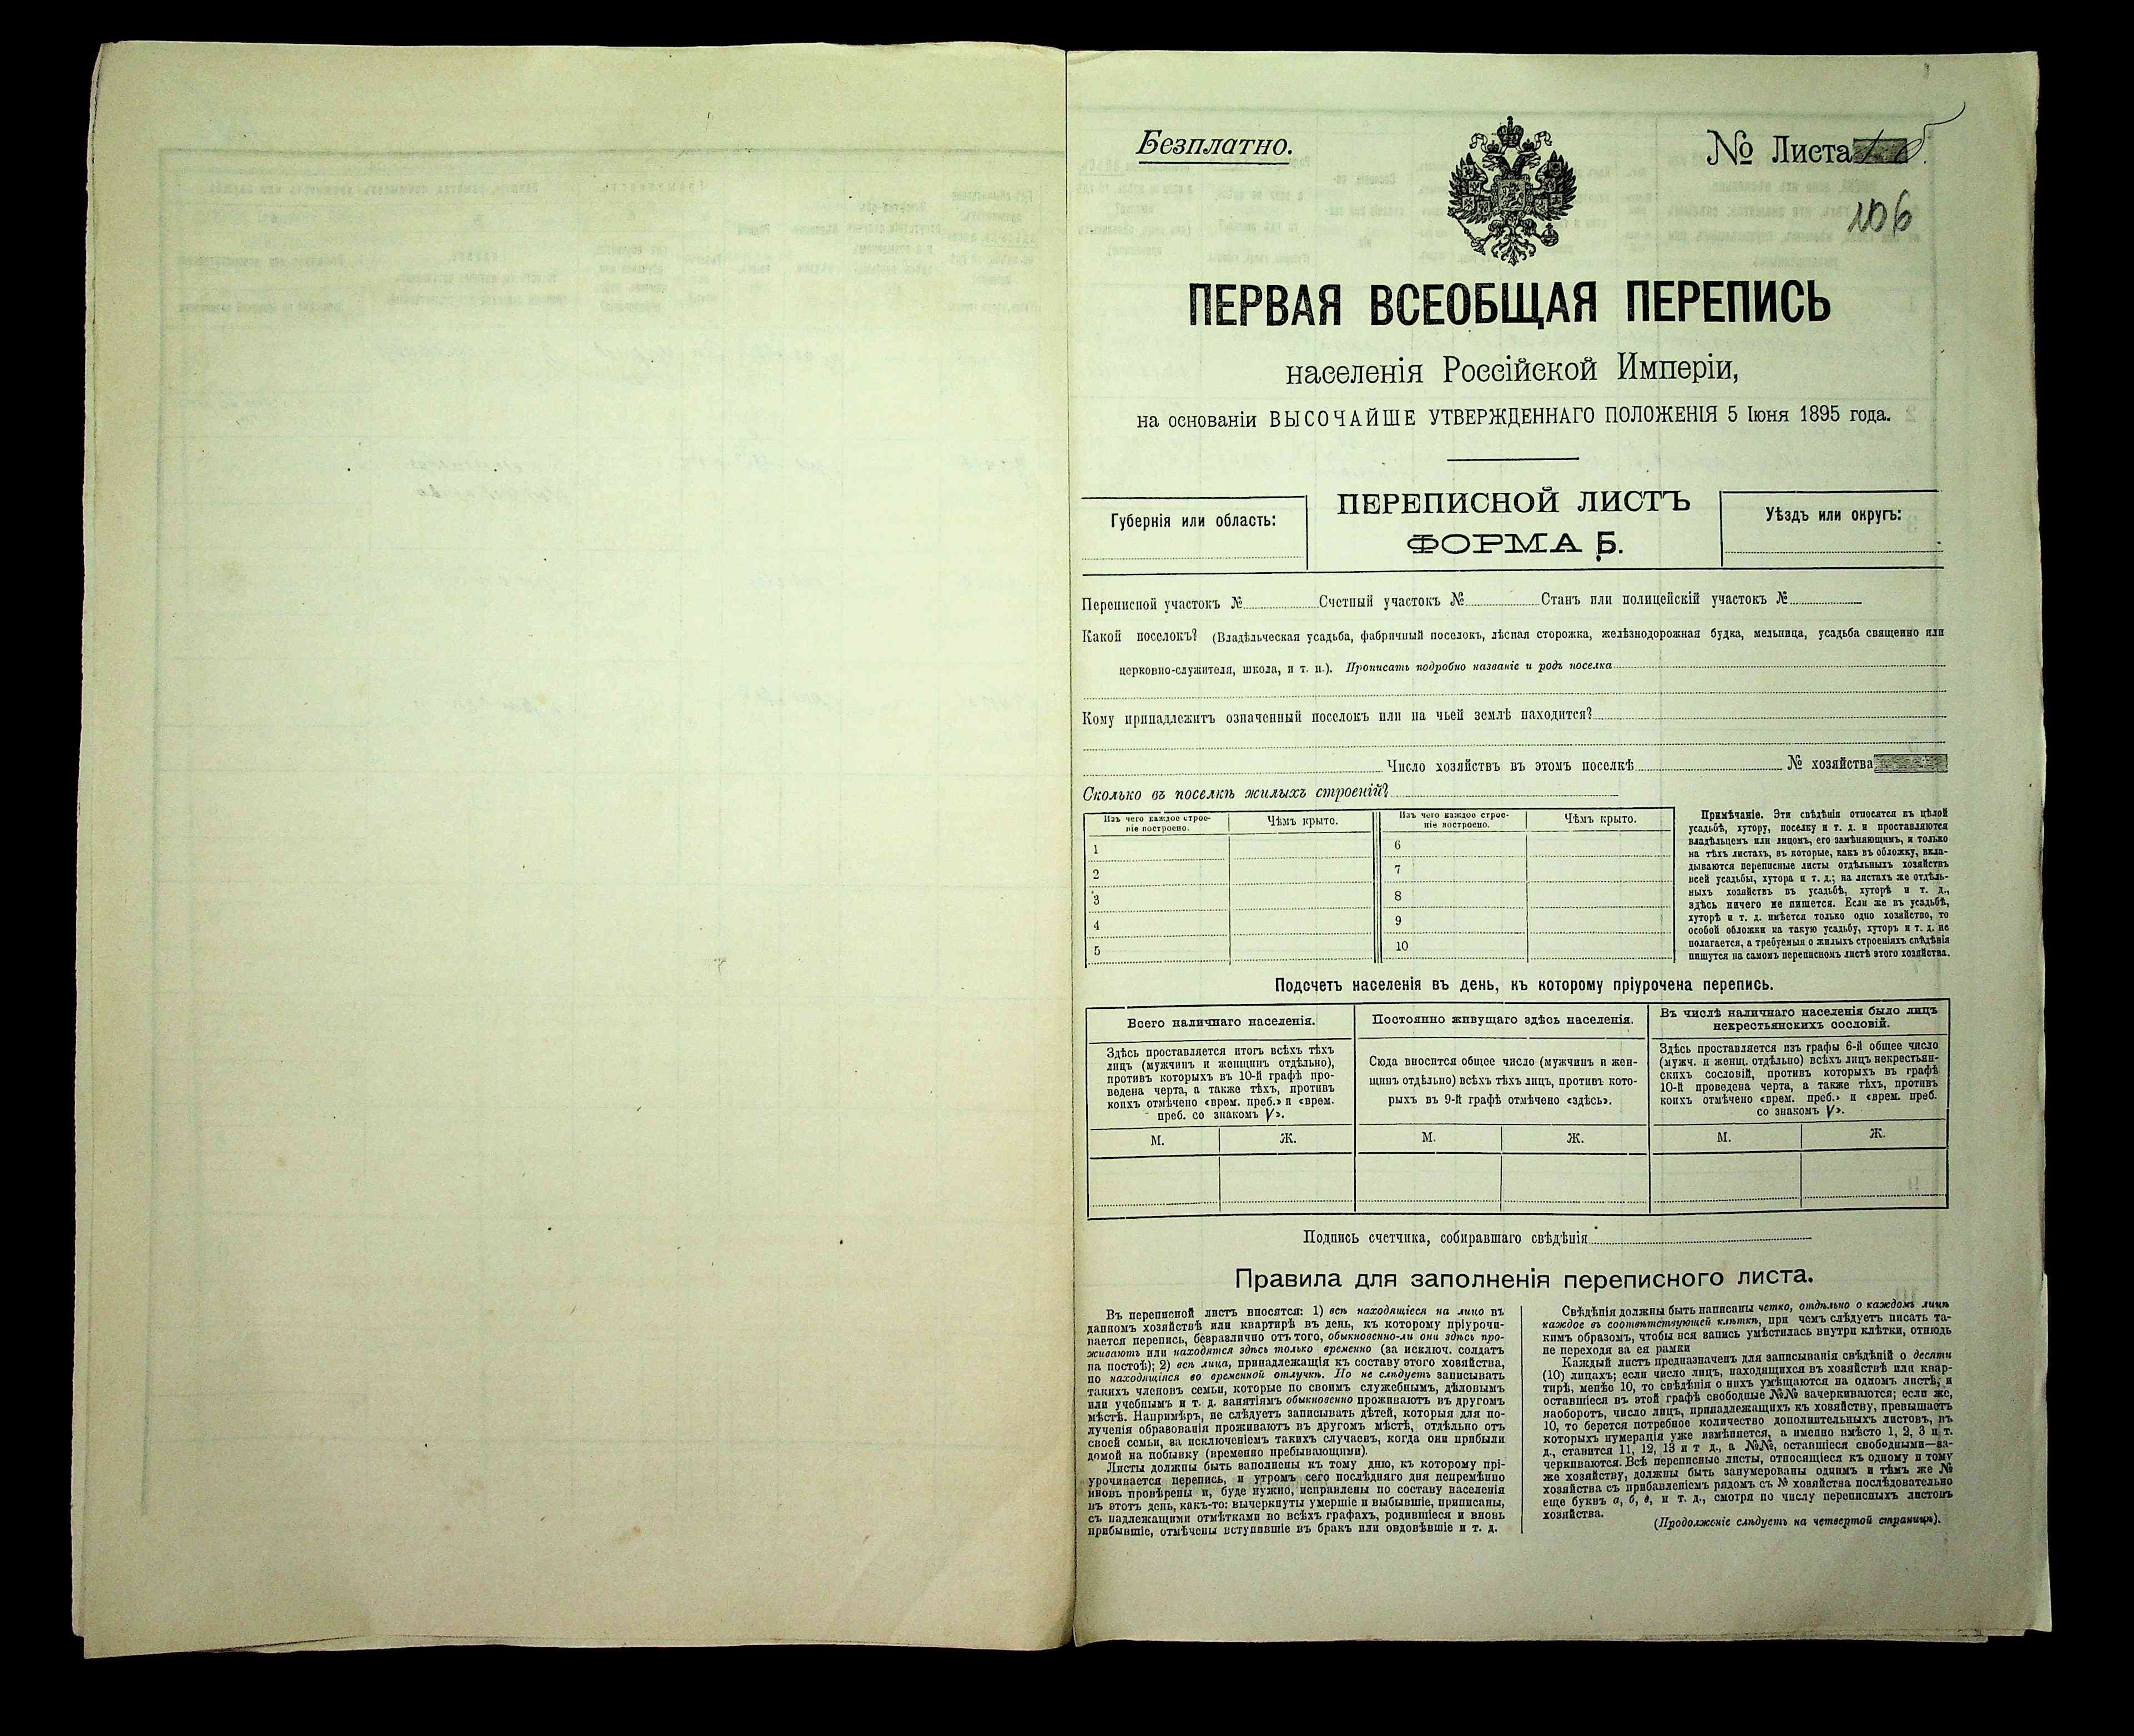 Безплатно.
№ Листа
106
ПЕРВАЯ ВСЕОБЩАЯ ПЕРЕПИСЬ
населенія Россійской Имперіи,
на основаніи ВЫСОЧАЙШЕ УТВЕРЖДЕННАГО ПОЛОЖЕНІЯ 5 Іюня 1895 года.
Губернія или область:
ПЕРЕПИСНОЙ ЛИСТЪ
ФОРМА Б.
Уѣздъ или округъ:
Переписной участокъ № Счетный участокъ № Станъ или полицейскій участокъ №
Какой поселокъ? (Владѣльческая усадьба, фабричный поселокъ, лѣсная сторожка, желѣзнодорожная будка, мельница, усадьба священно или
церковно-служителя, школа, и т. п.). Прописать подробно названіе и родъ поселка
Кому принадлежитъ означенный поселокъ или на чьей землѣ находится?
Число хозяйствъ въ этомъ поселкѣ № хозяйства
Сколько въ поселкѣ жилыхъ строеній?
Изъ чего каждое строе-
ніе построено.
Чѣмъ крыто.
Изъ чего каждое строе-
ніе построено.
Чѣмъ крыто.
1
2
3
4
5
6
7
8
9
10
Примѣчаніе. Эти свѣдѣнія относятся къ цѣлой
усадьбѣ, хутору, поселку и т. д. и проставляются
владѣльцемъ или лицомъ, его замѣняющимъ, и только
на тѣхъ листахъ, въ которые, какъ въ обложку, вкла-
дываются переписные листы отдѣльныхъ хозяйствъ
всей усадьбы, хутора и т. д.; на листахъ же отдѣль-
ныхъ хозяйствъ въ усадьбѣ, хуторѣ и т. д.,
здѣсь ничего не пишется. Если же въ усадьбѣ,
хуторѣ и т. д. имѣется только одно хозяйство, то
особой обложки на такую усадьбу, хуторъ и т. д. не
полагается, а требуемыя о жилыхъ строеніяхъ свѣдѣнія
пишутся на самомъ переписномъ листѣ этого хозяйства.
Подсчетъ населенія въ день, къ которому пріурочена перепись.
Всего наличнаго населенія.
Здѣсь проставляется итогъ всѣхъ тѣхъ
лицъ (мужчинъ и женщинъ отдѣльно),
противъ которыхъ въ 10-й графѣ про-
ведена черта, а также тѣхъ, противъ
коихъ отмѣчено «врем. преб.» и «врем.
преб. со знакомъ V».
Постоянно живущаго здѣсь населенія.
Сюда вносится общее число (мужчинъ и жен-
щинъ отдѣльно) всѣхъ тѣхъ лицъ, противъ кото-
рыхъ въ 9-й графѣ отмѣчено «здѣсь».
Въ числѣ наличнаго населенія было лицъ
некрестьянскихъ сословій.
Здѣсь проставляется изъ графы 6-й общее число
(мужч. и женщ. отдѣльно) всѣхъ лицъ некрестьян-
скихъ сословій, противъ которыхъ въ графѣ
10-й проведена черта, а также тѣхъ, противъ
коихъ отмѣчено «врем. преб.» и «врем. преб.
со знакомъ V».
М. Ж. М. Ж. М. Ж.
Подпись счетчика, собиравшаго свѣдѣнія
Правила для заполненія переписного листа.
Въ переписной листъ вносятся: 1) всѣ находящіеся на лицо въ
данномъ хозяйствѣ или квартирѣ въ день, къ которому пріурочи-
вается перепись, безразлично отъ того, обыкновенно-ли они здѣсь про-
живаютъ или находятся здѣсь только временно (за исключ. солдатъ
на постоѣ); 2) всѣ лица, принадлежащія къ составу этого хозяйства,
но находящіяся во временной отлучкѣ. Но не слѣдуетъ записывать
такихъ членовъ семьи, которые по своимъ служебнымъ, дѣловымъ
или учебнымъ и т. д. занятіямъ обыкновенно проживаютъ въ другомъ
мѣстѣ. Напримѣръ, не слѣдуетъ записывать дѣтей, которыя для по-
лученія образованія проживаютъ въ другомъ мѣстѣ, отдѣльно отъ
своей семьи, за исключеніемъ такихъ случаевъ, когда они прибыли
домой на побывку (временно пребывающими).
Листы должны быть заполнены къ тому дню, къ которому прі-
урочивается перепись, и утромъ сего послѣдняго дня непремѣнно
вновь провѣрены и, буде нужно, исправлены по составу населенія
въ этотъ день, какъ-то: вычеркнуты умершіе и выбывшіе, приписаны,
съ надлежащими отмѣтками во всѣхъ графахъ, родившіеся и вновь
прибывшіе, отмѣчены вступившіе въ бракъ или овдовѣвшіе и т. д.
Свѣдѣнія должны быть написаны четко, отдѣльно о каждомъ лицѣ
каждое въ соотвѣтствующей клѣткѣ, при чемъ слѣдуетъ писать та-
кимъ образомъ, чтобы вся запись умѣстилась внутри клѣтки, отнюдь
не переходя за ея рамки
Каждый листъ предназначенъ для записыванія свѣдѣній о десяти
(10) лицахъ; если число лицъ, находящихся въ хозяйствѣ или квар-
тирѣ, менѣе 10, то свѣдѣнія о нихъ умѣщаются на одномъ листѣ, и
оставшіеся въ этой графѣ свободные №№ зачеркиваются; если же,
наоборотъ, число лицъ, принадлежащихъ къ хозяйству, превышаетъ
10, то берется потребное количество дополнительныхъ листовъ, въ
которыхъ нумерація уже измѣняется, а именно вмѣсто 1, 2, 3 и т.
д., ставится 11, 12, 13 и т д., а №№, оставшіеся свободными—за-
черкиваются. Всѣ переписные листы, относящіеся къ одному и тому
же хозяйству, должны быть занумерованы однимъ и тѣмъ же №
хозяйства съ прибавленіемъ рядомъ съ № хозяйства послѣдовательно
еще буквъ а, б, в, и т. д., смотря по числу переписныхъ листовъ
хозяйства.
(Продолженіе слѣдуетъ на четвертой страницѣ).